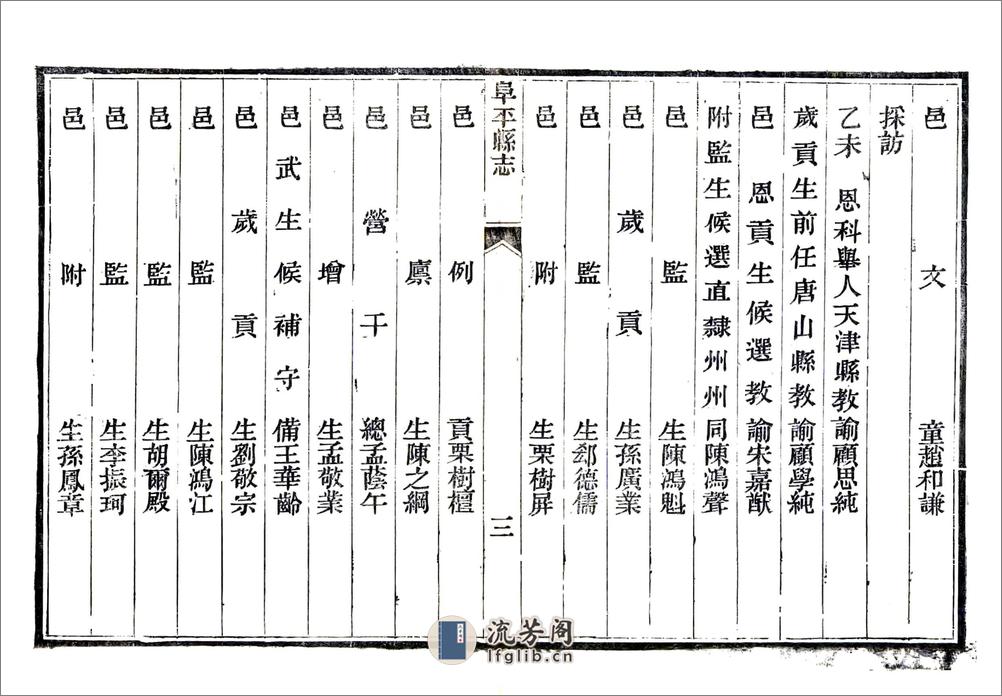 邑文童趙和謙
採訪
乙未恩科舉人天津縣教諭顧思純
歲貢生前任唐山縣教諭顧學純
邑恩貢生候選教諭宋嘉猷
附監生候選直隸州州同陳鴻聲
邑監生陳鴻魁
邑歲貢生孫廣業
邑監生郄德儒
邑附生栗樹屏
阜平縣志
三
邑例貢栗樹檀
邑廪生陳之綱
邑營千總孟蔭午
邑增生孟敬業
邑武生候補守備王華齡
邑歲貢生劉敬宗
邑監生陳鴻江
邑監生胡爾殿
邑監生李振珂
邑附生孫鳳章
流芳阁
lfglib.cn